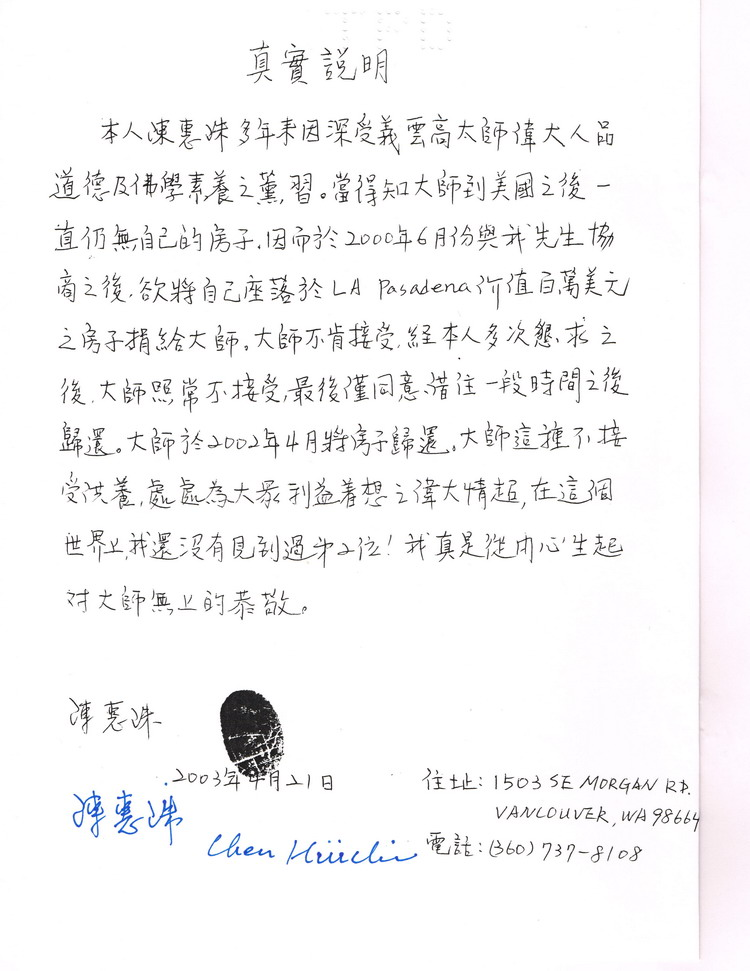 真實說明
本人陳惠姝多年來因深受義雲高大師偉大人品
道德及佛學素養之薰習。當得知大師到美國之後一
直仍無自己的房子,因而於2000年6月份與我先生協
商之後,欲將自己座落於LA Pasadena价值百萬美元
之房子捐給大師。大師不肯接受,經本人多次懇求之
後,大師照常不接受,最後僅同意借住一段時間之後
歸還。大師於2002年4月將房子歸還。大師這種不接
受供養,處處為大眾利益着想之偉大情超,在這個
世界上,我還沒有見到過第2位!我真是從內心生起
對大師無上的恭敬。
陳惠姝
2003年4月21日
住址:1503 SE MORGAN RD.
VANCOUVER, WA 98664
陳惠姝
電話:(360)737-8108